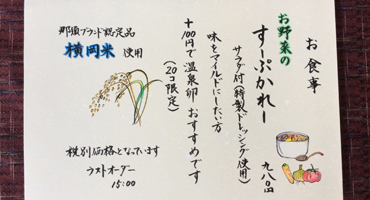 お食事
お野菜の
すーぷかれー
九八〇円
サラダ付(特製ドレッシング使用)
味をマイルドにしたい方
+100円で温泉卵おすすめです
(20コ限定)
那須ブランド認定品
横岡米 使用
税別価格となっています
ラストオーダー
15:00